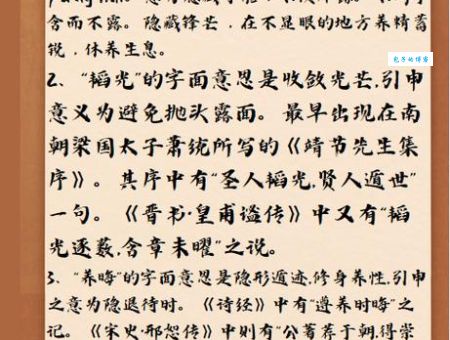 含而不露。隐藏锋芒，在不显眼的地方养精蓄
锐，休养生息。
包子的博客
2、“韬光”的字面意思是收敛光芒,引申
意义为避免抛头露面。最早出现在南
朝梁国太子萧统所写的《靖节先生集
序》。其序中有“圣人韬光,贤人遁世”
一句。《晋书·皇甫谧传》中又有“韬
光逐薮,含章未曜”之说。
3、“养晦”的字面意思是隐形遁迹,修身养性,引申
之意为隐退待时。《诗经》中有“遵养时晦”之
记。《宋史·邢恕传》中则有“公著荐于朝,得崇